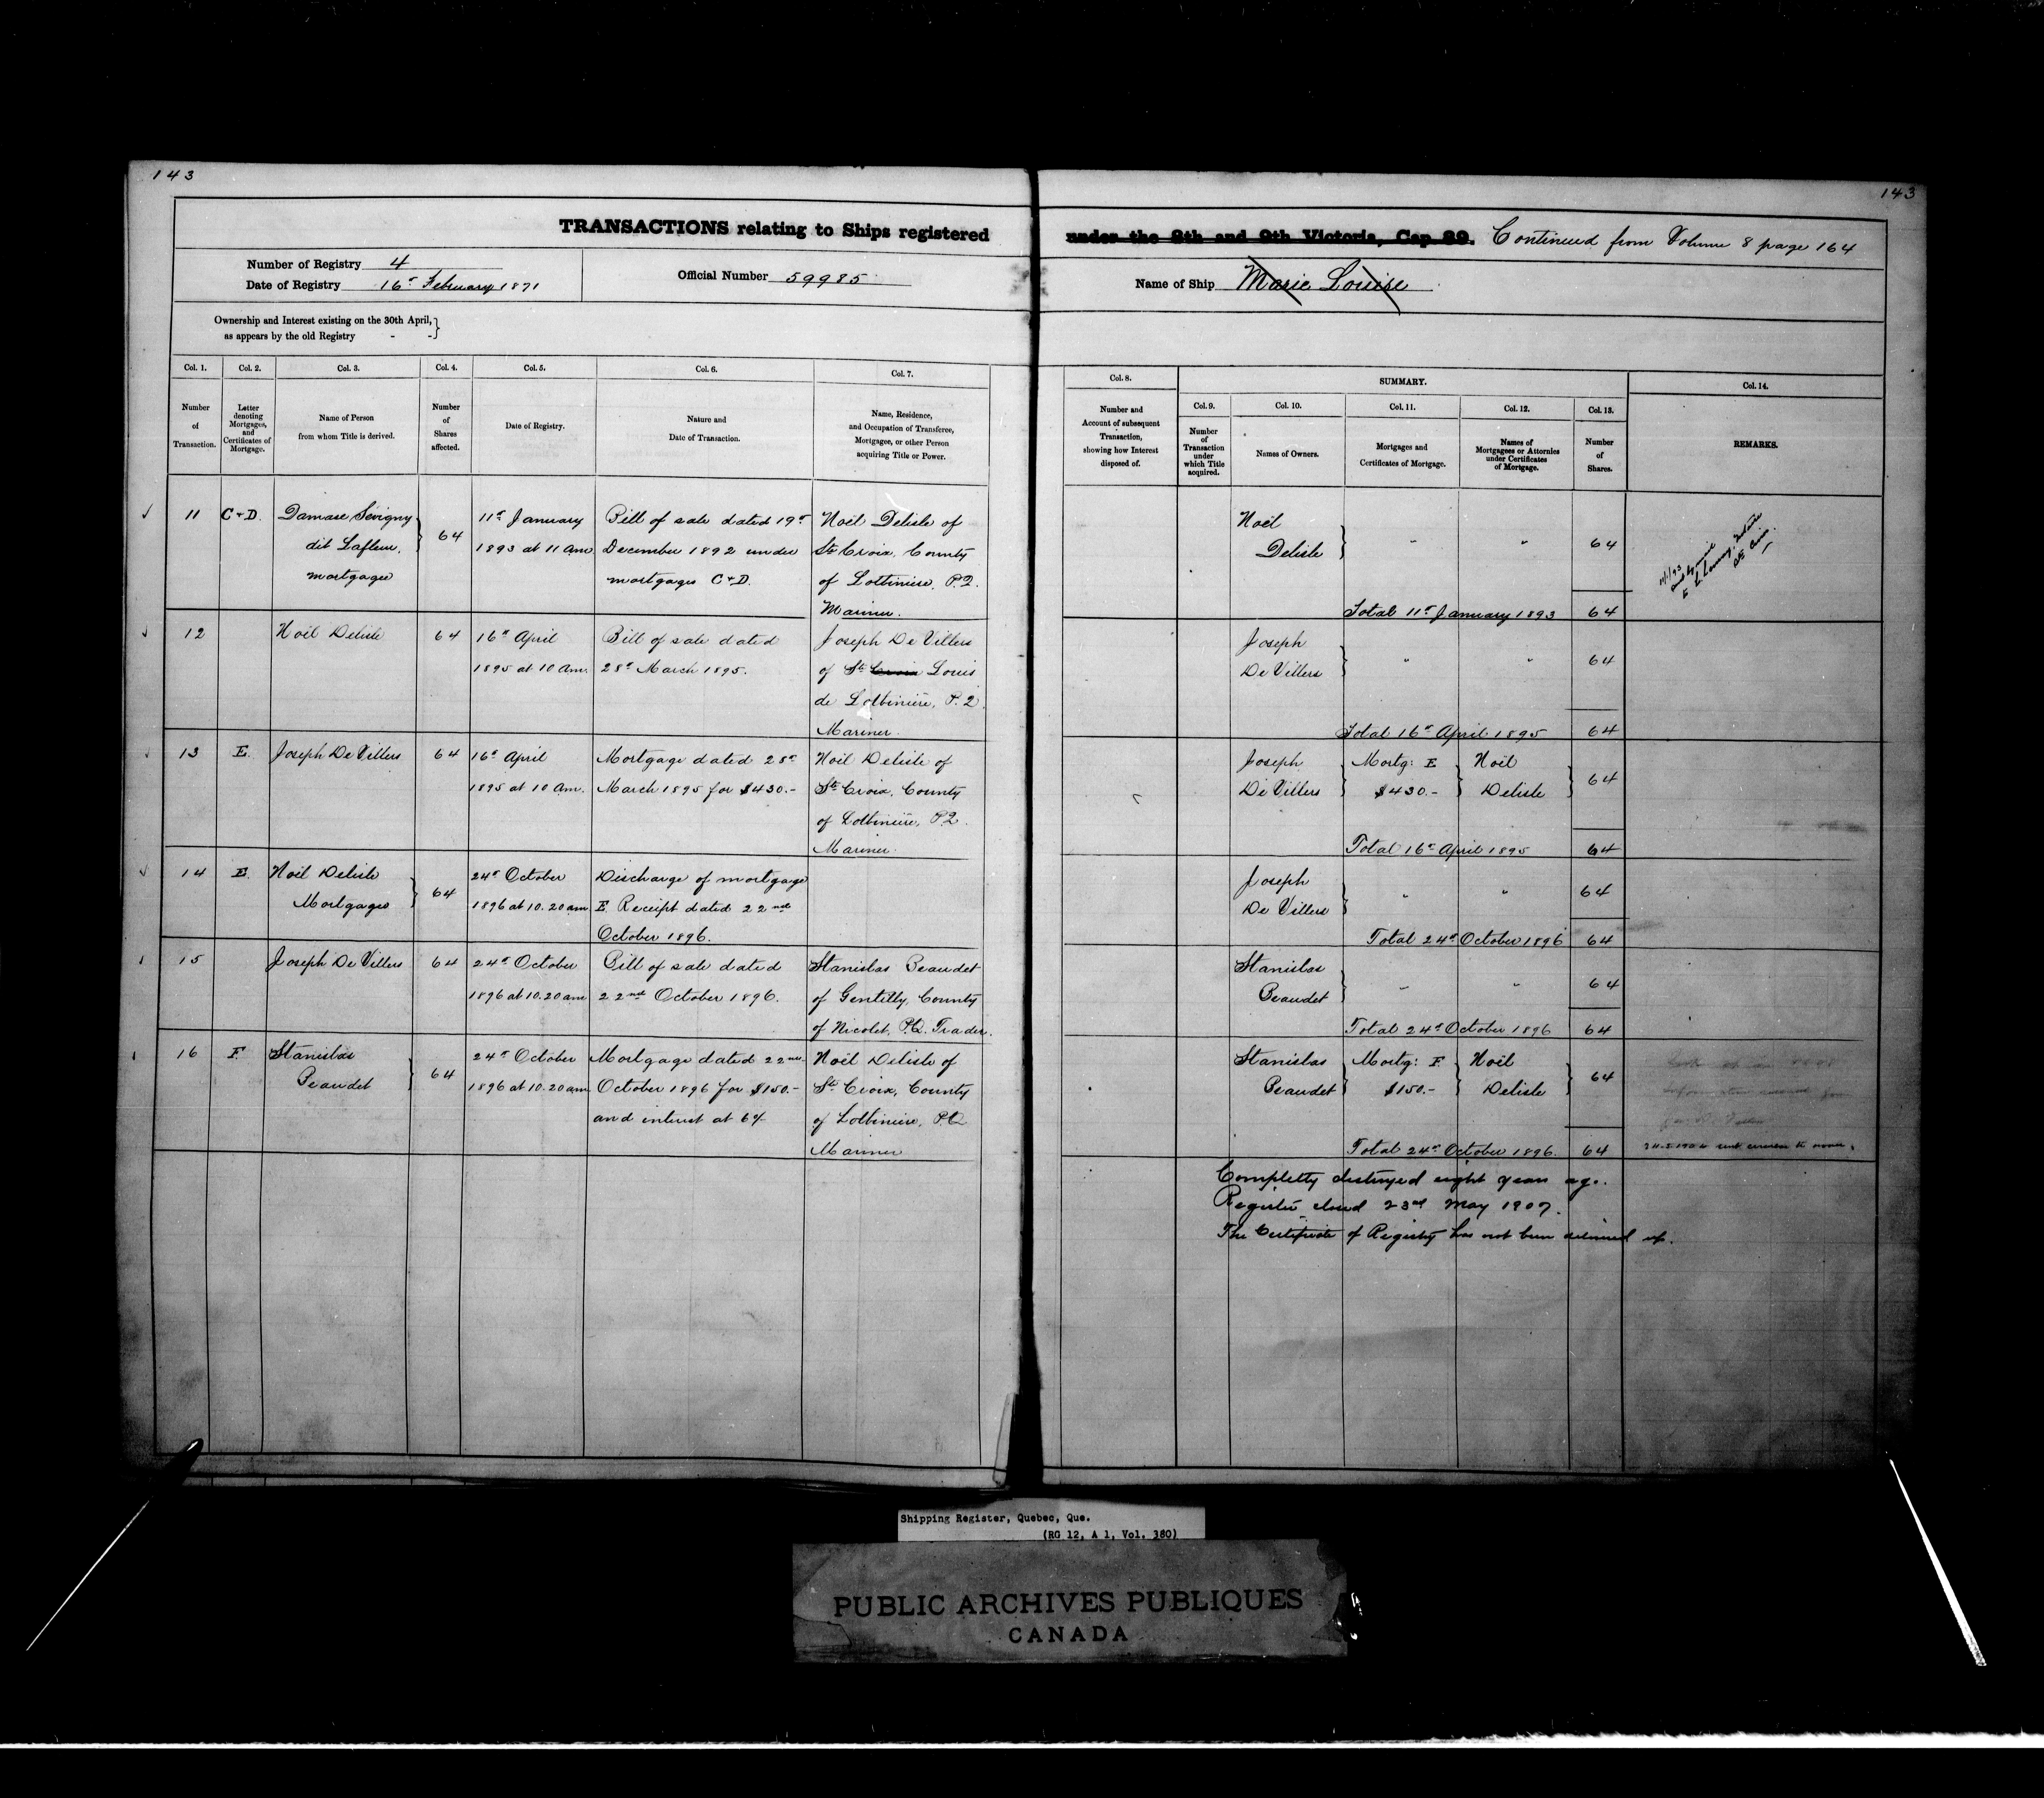 143
143
TRANSACTIONS relating to Ships registered under the 8th and 9th Victoria, Cap 89. Continued from Volume 8 page 164
Number of Registry 4
Date of Registry 16th February 1871
Official Number 59985
Name of Ship Marie Louise
Ownership and Interest existing on the 30th April,
as appears by the old Registry - -
Col. 1.
Number
of
Transaction.
Col. 2.
Letter
denoting
Mortgages,
and
Certificates of
Mortgage.
Col. 3.
Name of Person
from whom Title is derived.
Col. 4.
Number
of
Shares
affected.
Col. 5.
Date of Registry.
Col. 6.
Nature and
Date of Transaction.
Col. 7.
Name, Residence,
and Occupation of Transferee,
Mortgagee, or other Person
acquiring Title or Power.
Col. 8.
Number and
Account of subsequent
Transaction,
showing how Interest
disposed of.
SUMMARY.
Col. 9.
Number
of
Transaction
under
which Title
acquired.
Col. 10.
Names of Owners.
Col. 11.
Mortgages and
Certificates of Mortgage.
Col. 12.
Names of
Mortgagees or Attornies
under Certificates
of Mortgage.
Col. 13.
Number
of
Shares.
Col. 14.
REMARKS.
11
C & D.
Damase Sevigny
dit Lafleur,
mortgagee
64
11th January
1893 at 11 am
Bill of sale dated 19th
December 1892 under
mortgages C & D.
Noël Delisle of
Ste Croix, County
of Lotbiniere, P.Q.
Mariner.
Noël
Delisle
" "
64
Total 11th January 1893 64
12
Noël Delisle
64
16th April
1895 at 10 am.
Bill of sale dated
28th March 1895.
Joseph De Villers
of St Croix Louis
de Lotbinière, P.Q.
Mariner.
Joseph
De Villers
" "
64
Total 16th April 1895 64
13
E.
Joseph De Villers
64
16th April
1895 at 10 am.
Mortgage dated 28th
March 1895 for $430.-
Noël Delisle of
Ste Croix, County
of Lotbinière, P.Q.
Mariner.
Joseph
De Villers
Mortg: E
$430.-
Noël
Delisle
64
Total 16th April 1895 64
14
E.
Noël Delisle
Mortgagee
64
24th October
1896 at 10.20 am
Discharge of mortgage
E. Receipt dated 22nd
October 1896.
Joseph
De Villers
" "
64
Total 24th October 1896 64
15
Joseph De Villers
64
24th October
1896 at 10.20 am
Bill of sale dated
22nd October 1896.
Stanislas Beaudet
of Gentilly, County
of Nicolet, P.Q. Trader.
Stanislas
Beaudet
" "
64
Total 24th October 1896 64
16
F.
Stanislas
Beaudet
64
24th October
1896 at 10.20 am
Mortgage dated 22nd
October 1896 for $150.-
and interest at 6%
Noël Delisle of
Ste Croix, County
of Lotbiniere, P.Q.
Mariner
Stanislas
Beaudet
Mortg: F.
$150.-
Noël
Delisle
64
Total 24th October 1896. 64
Completly destroyed eight years ago.
Register closed 23rd May 1907.
The Certificate of Registry has not been delivered up.
Shipping Register, Quebec, Que.
(RG 12, A 1, Vol. 380)
PUBLIC ARCHIVES PUBLIQUES
CANADA